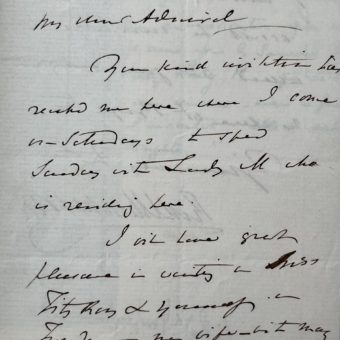 My dear Admiral
Your kind invitation has
reached me here where I come
on Saturdays to spend
Sunday with Lady M who
is residing here.
I will have great
pleasure in meeting Miss
Fitz Roy & yourself
my wife